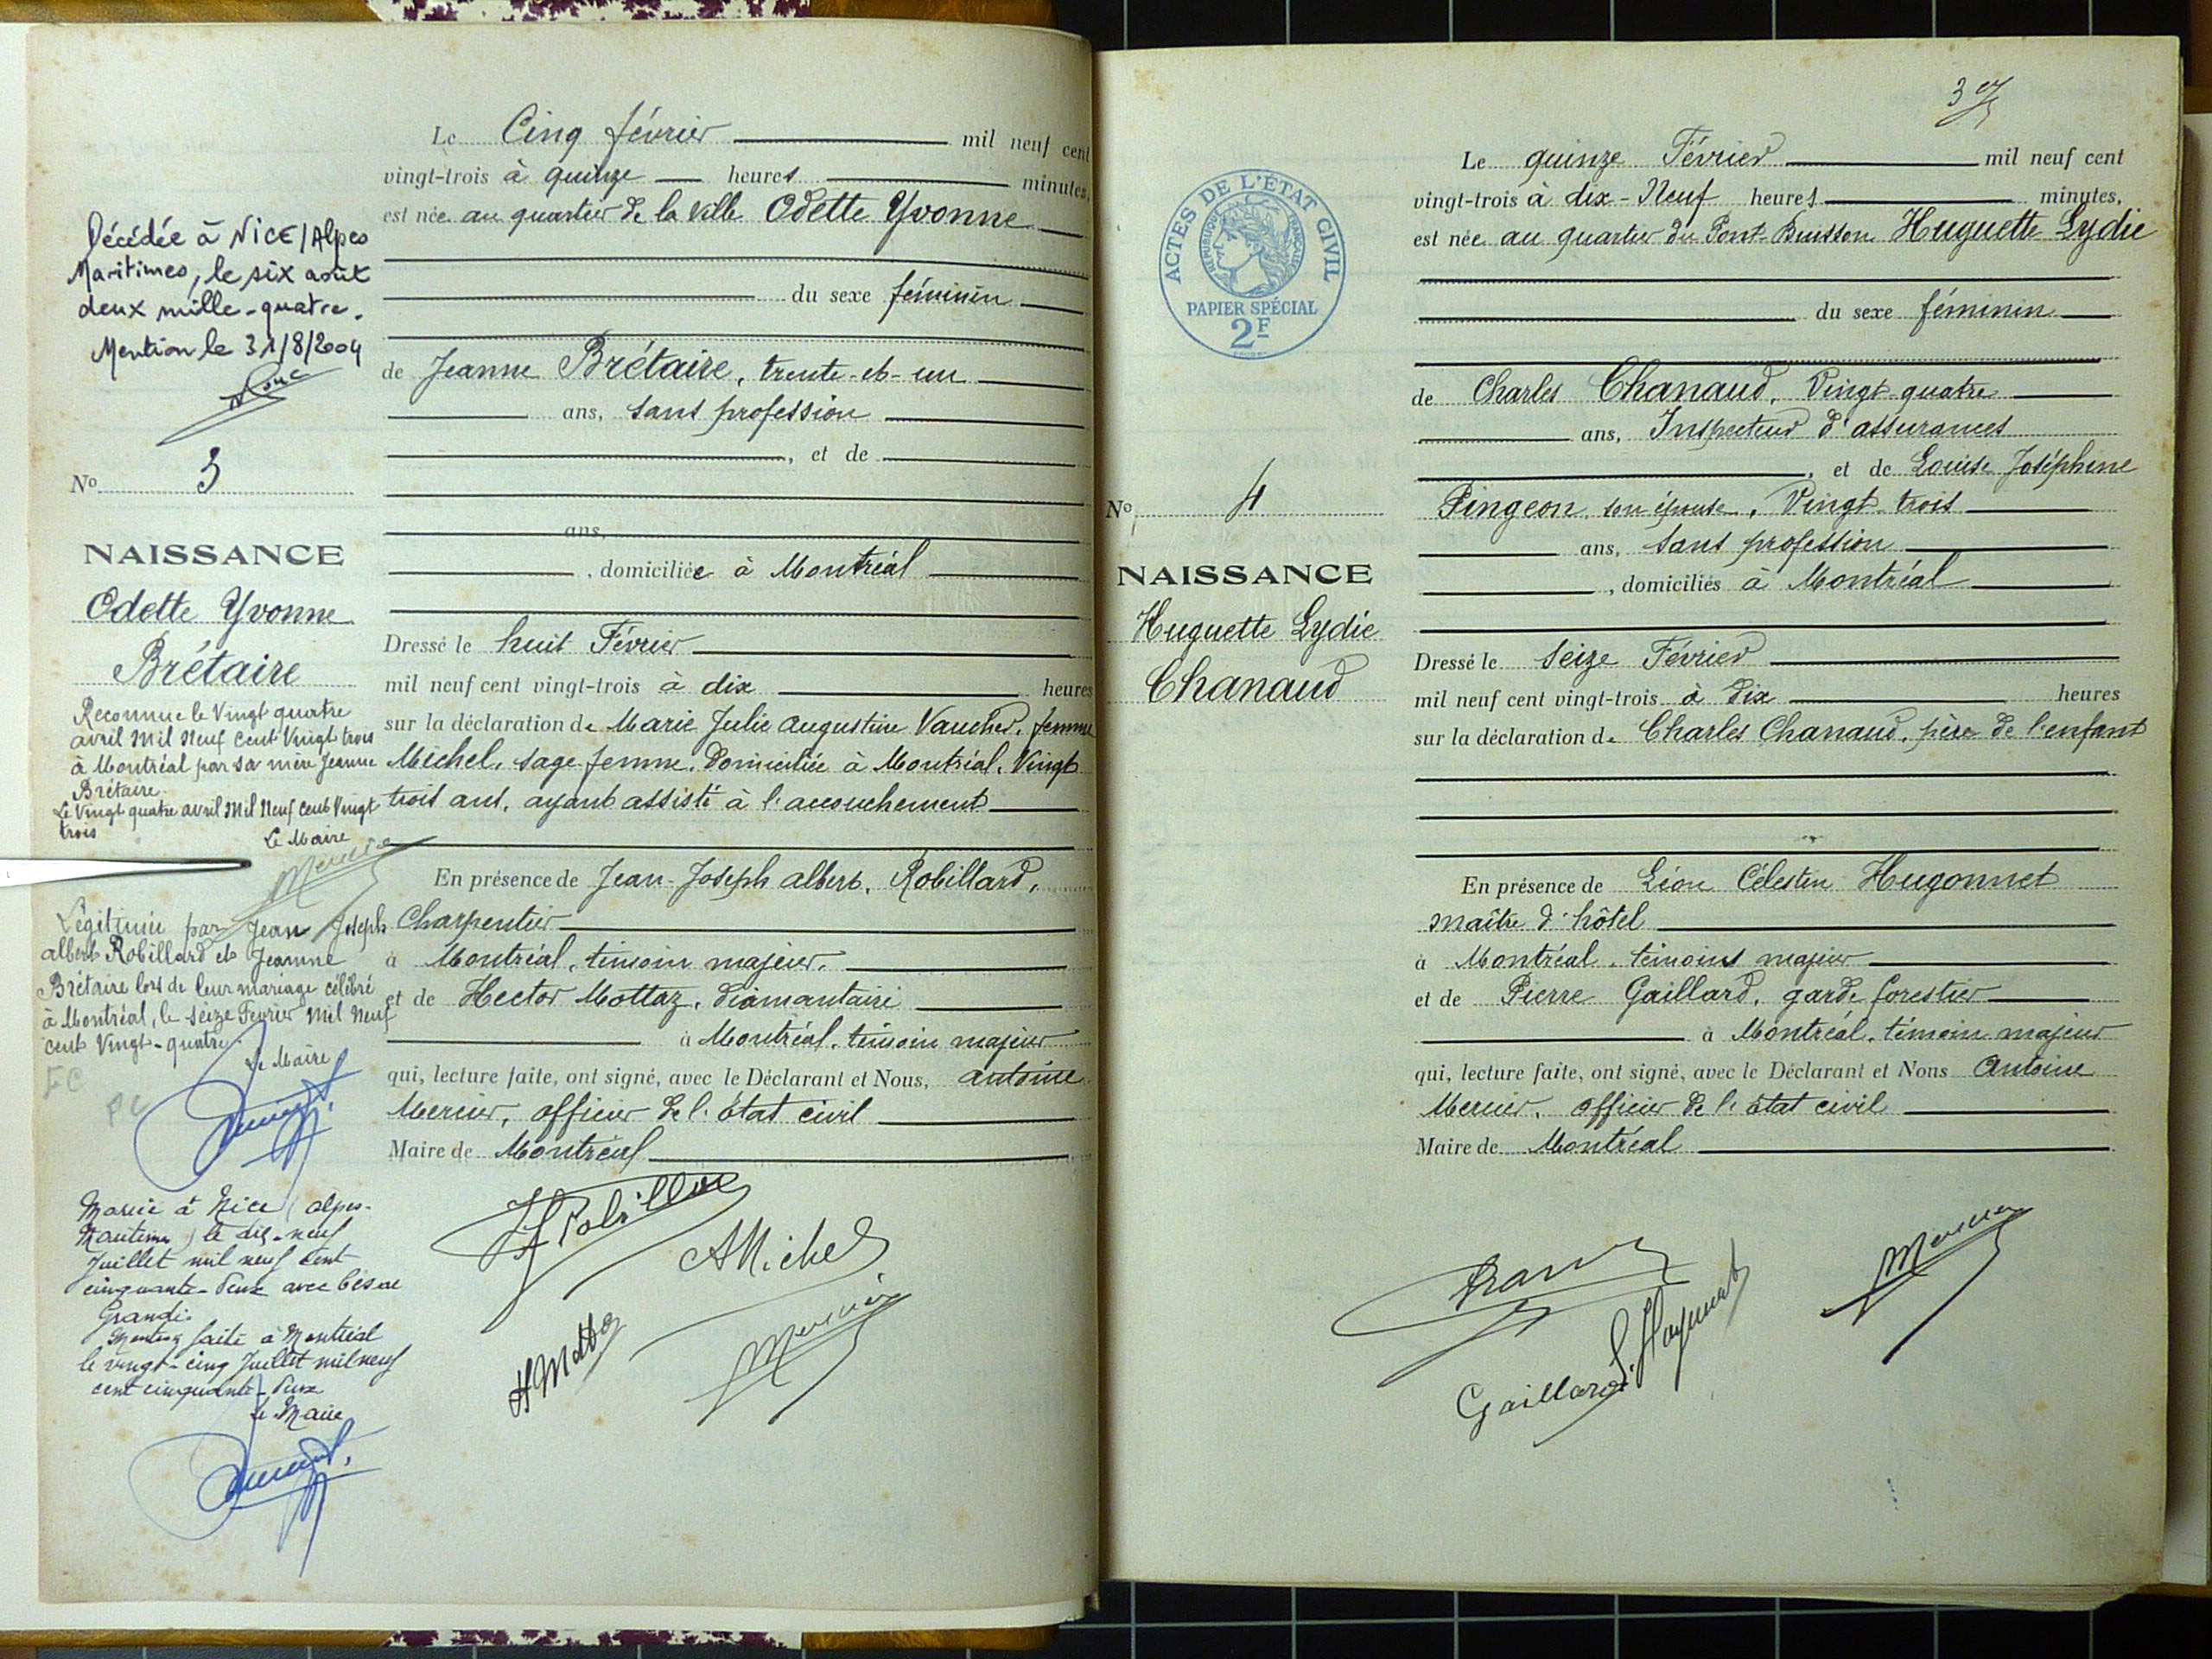 Le Cinq février mil neuf cent
vingt-trois à quinze heures minutes,
est née au quartier de la Ville Odette Yvonne
du sexe féminin
de Jeanne Brétaire, trente-et-un
ans, sans profession
, et de
ans,
, domiciliée à Montréal
Dressé le huit Février
mil neuf cent vingt-trois à dix heures
sur la déclaration de Marie Julie Augustine Vaucher, femme
Michel, sage femme, domiciliée à Montréal, Vingt
trois ans, ayant assisté à l'accouchement
En présence de Jean-Joseph albert, Robillard,
Charpentier
à Montréal, témoin majeur,
et de Hector Mottaz, diamantaire
à Montréal, témoin majeur
qui, lecture faite, ont signé, avec le Déclarant et Nous, antoine
Mercier, officier de l'État civil
Maire de Montréal
AMichel
Mercier
Décédée à NICE/Alpes
Maritimes, le six août
deux mille-quatre.
Mention le 31/8/2004
No 3
NAISSANCE
Odette Yvonne
Brétaire
Reconnue le Vingt quatre
avril Mil Neuf Cent Vingt trois
à Montréal par sa mère Jeanne
Brétaire
Le Vingt quatre avril Mil Neuf Cent Vingt
trois
Le Maire
Mercier
Légitimée par Jean Joseph
albert Robillard et Jeanne
Brétaire lors de leur mariage célébré
à Montréal, le seize Février Mil Neuf
cent Vingt-quatre.
Le Maire
Mariée à Nice (alpes-
Maritimes) le dix-neuf
Juillet mil neuf cent
cinquante-deux avec César
Grandi.
Mention faite à Montréal
le vingt-cinq Juillet mil neuf
cent cinquante-deux
Le Maire
3
ACTES DE L'ÉTAT CIVIL
RÉPUBLIQUE FRANÇAISE
PAPIER SPÉCIAL
2F
No 4
NAISSANCE
Huguette Lydie
Chanaud
Le quinze Février mil neuf cent
vingt-trois à dix-Neuf heures minutes,
est née au quartier du Pont-Buisson Huguette Lydie
du sexe féminin
de Charles Chanaud, Vingt-quatre
ans, Inspecteur d'assurances
, et de Louise Joséphine
Pingeon, son épouse, Vingt-trois
ans, sans profession
, domiciliés à Montréal
Dressé le seize Février
mil neuf cent vingt-trois à dix heures
sur la déclaration de Charles Chanaud, père de l'enfant
En présence de Léon Célestin Hugonnet
maître d'hôtel
à Montréal, témoins majeur
et de Pierre Gaillard, garde forestier
à Montréal, témoin majeur
qui, lecture faite, ont signé, avec le Déclarant et Nous Antoine
Mercier, officier de l'état civil
Maire de Montréal
Mercier
Gaillard